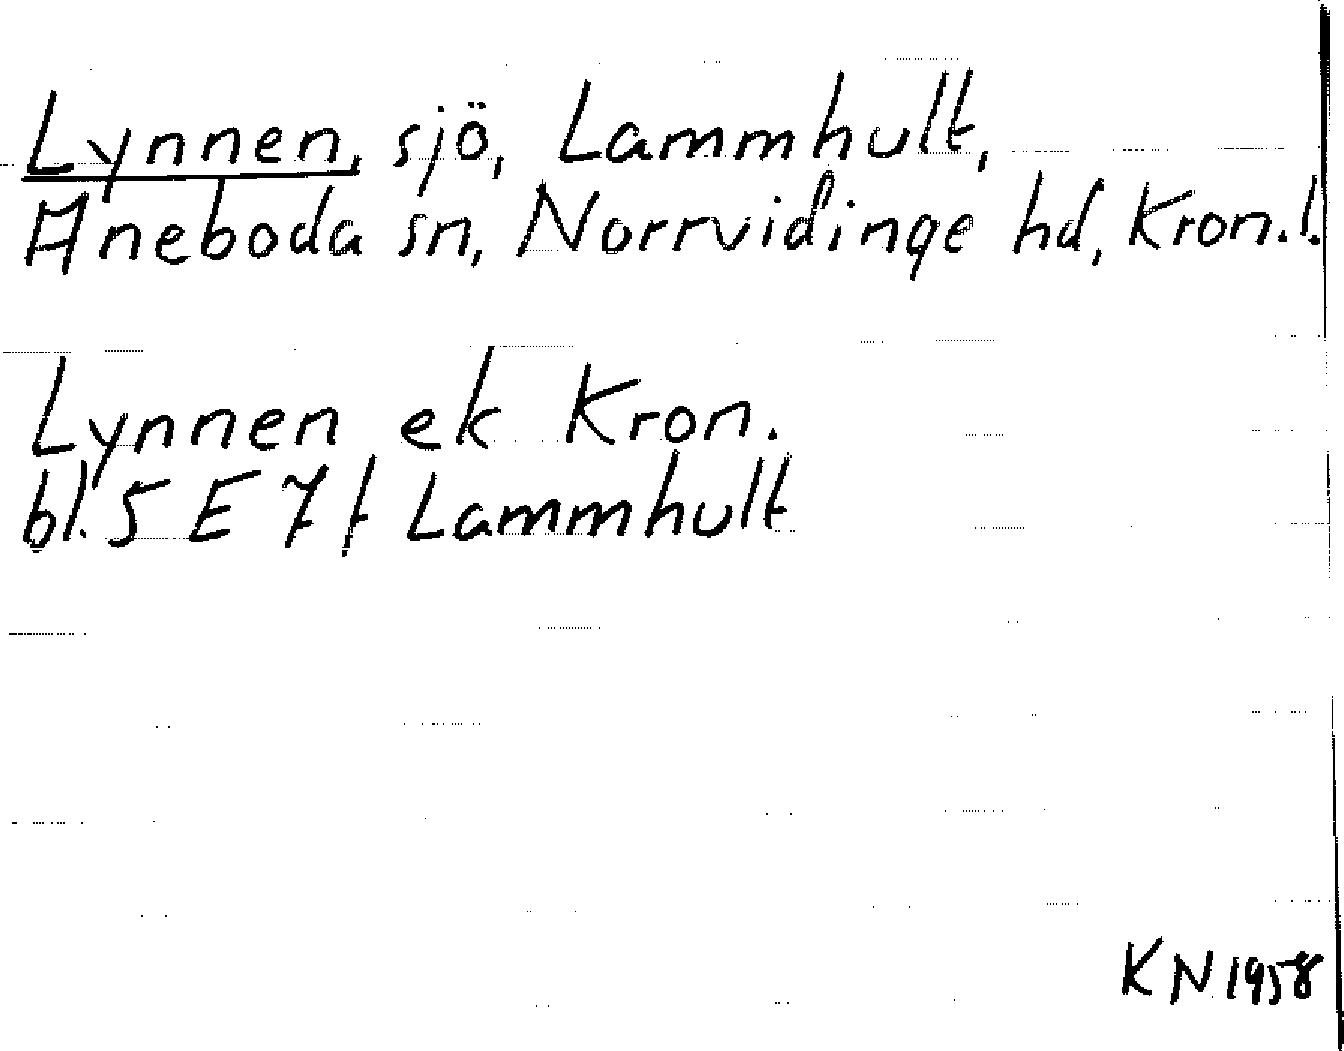 Lynnen, sjö, Lammhult,
Aneboda sn, Norrvidinge hd, Kron.l.
Lynnen ek Kron.
bl. 5 E 7 f Lammhult
KN 1958